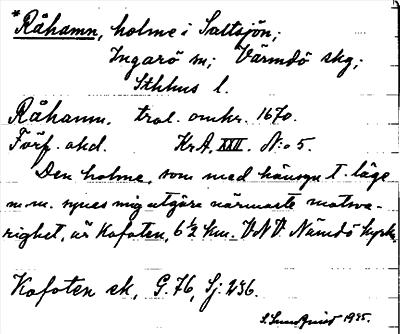 *Råhamn, holme i Saltsjön;
Ingarö sn; Värmdö skg;
Sthlms l.
Råhamn. trol. omkr. 1670.
Förf. okd. Kr.A. XXII. N:o 5.
Den holme, som med hänsyn t. läge
m.m. synes mig utgöra närmaste motsva-
righet, är Kofoten, 6 ½ km. V.N.V. Nämdö kyrka.
Kofoten ek, G. 76, Sj: 236.
1935.